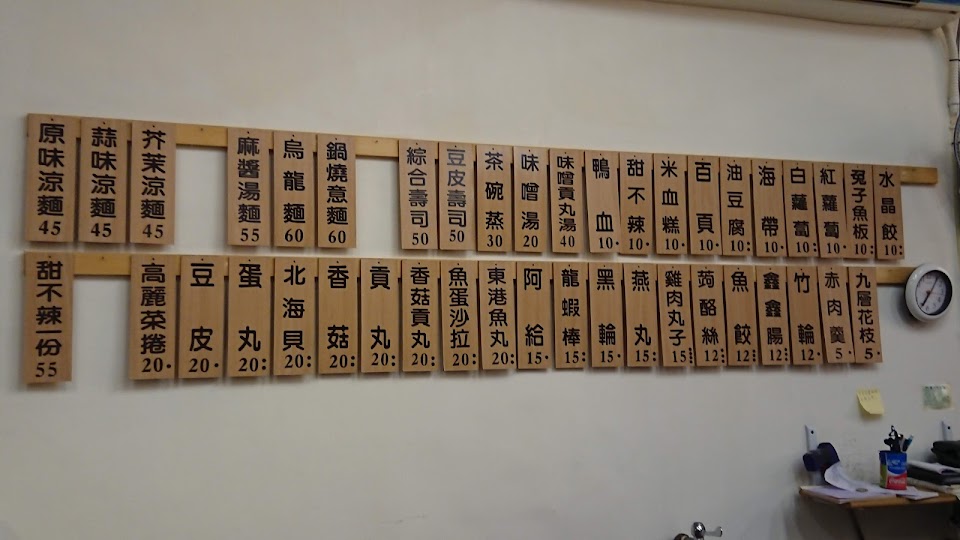 原味涼麵 45
蒜味涼麵 45
芥茉涼麵 45
麻醬湯麵 55
烏龍麵 60
鍋燒意麵 60
綜合壽司 50
豆皮壽司 50
茶碗蒸 30
味噌湯 20
味噌貢丸湯 40
鴨血 10
甜不辣 10
米血糕 10
百頁 10
油豆腐 10
海帶 10
白蘿蔔 10
紅蘿蔔 10
兔子魚板 10
水晶餃 10
甜不辣一份 55
高麗菜捲 20
豆皮 20
蛋丸 20
北海貝 20
香菇 20
貢丸 20
香菇貢丸 20
魚蛋沙拉 20
東港魚丸 20
阿給 15
龍蝦棒 15
黑輪 15
燕丸 15
雞肉丸子 15
蒟酪絲 12
魚餃 12
鑫鑫腸 12
竹輪 12
赤肉羹 5
九層花枝 5